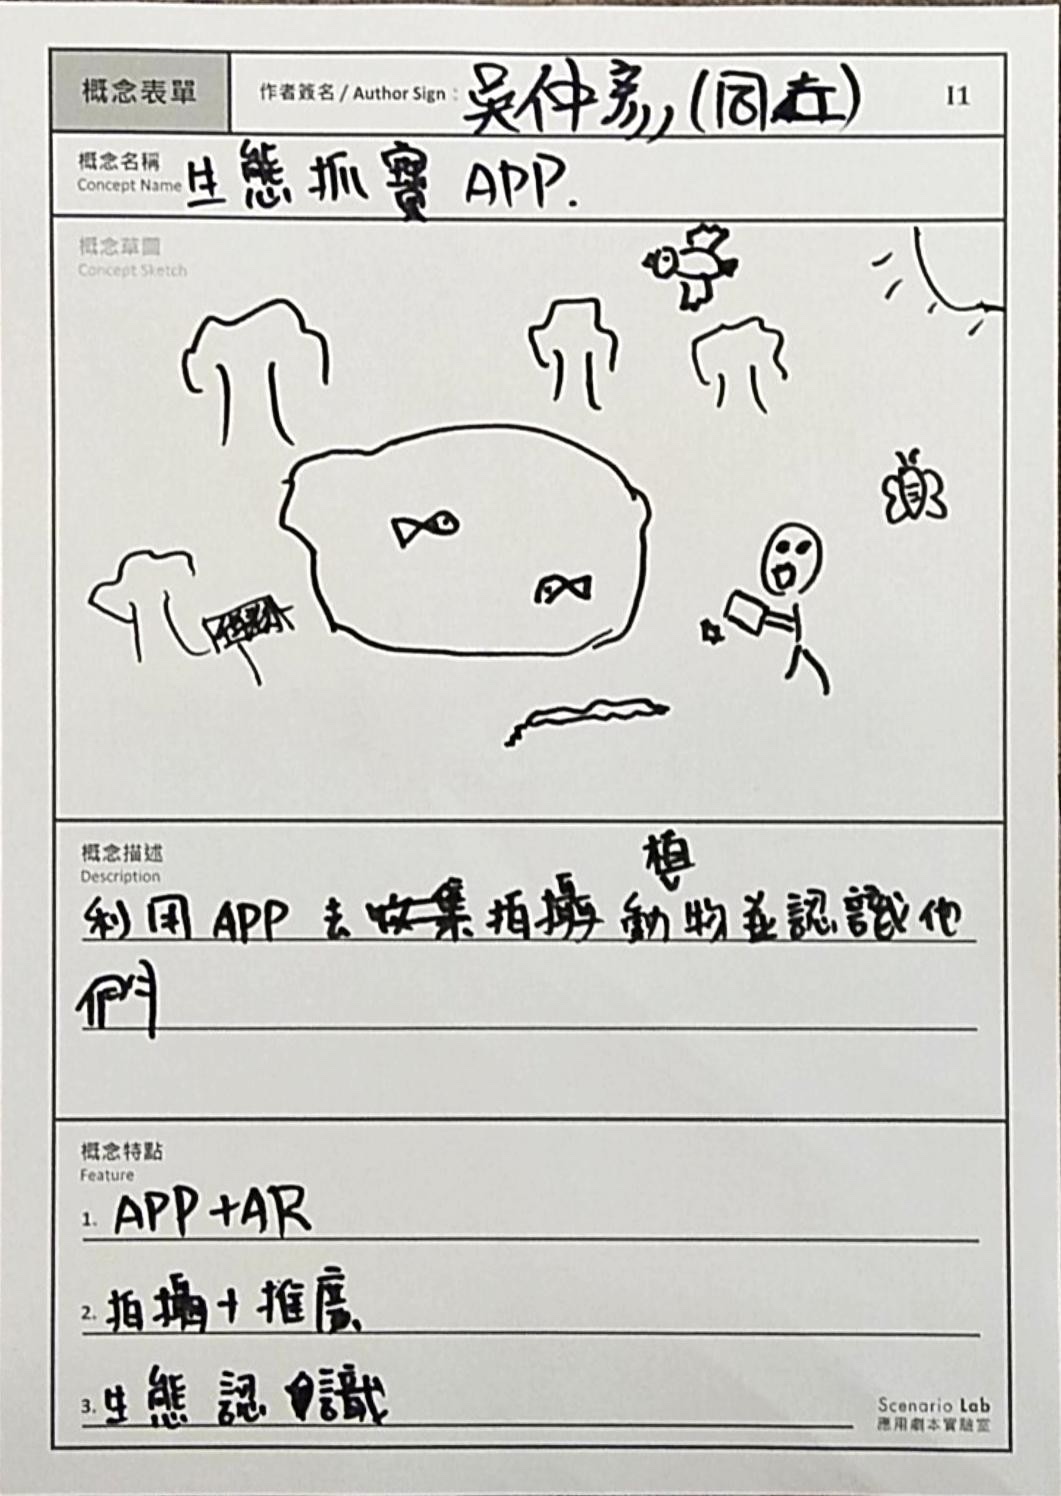 概念表單
作者簽名 / Author Sign : 吳仲彥 (同在)
I1
概念名稱
Concept Name 生態抓寶 APP.
概念草圖
Concept Sketch
概念描述
Description
植
利用 APP 去收集拍攝動物並認識他
們
概念特點
Feature
1. APP+AR
2. 拍攝+推廣
3. 生態認識
Scenario Lab
應用劇本實驗室